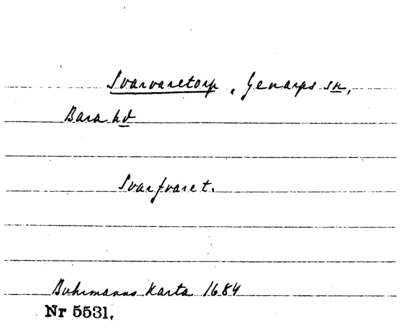 Svarvaretorp, Genarps sn,
Bara hd
Svarfvaret.
Buhrmanns Karta 1684
Nr 5531.